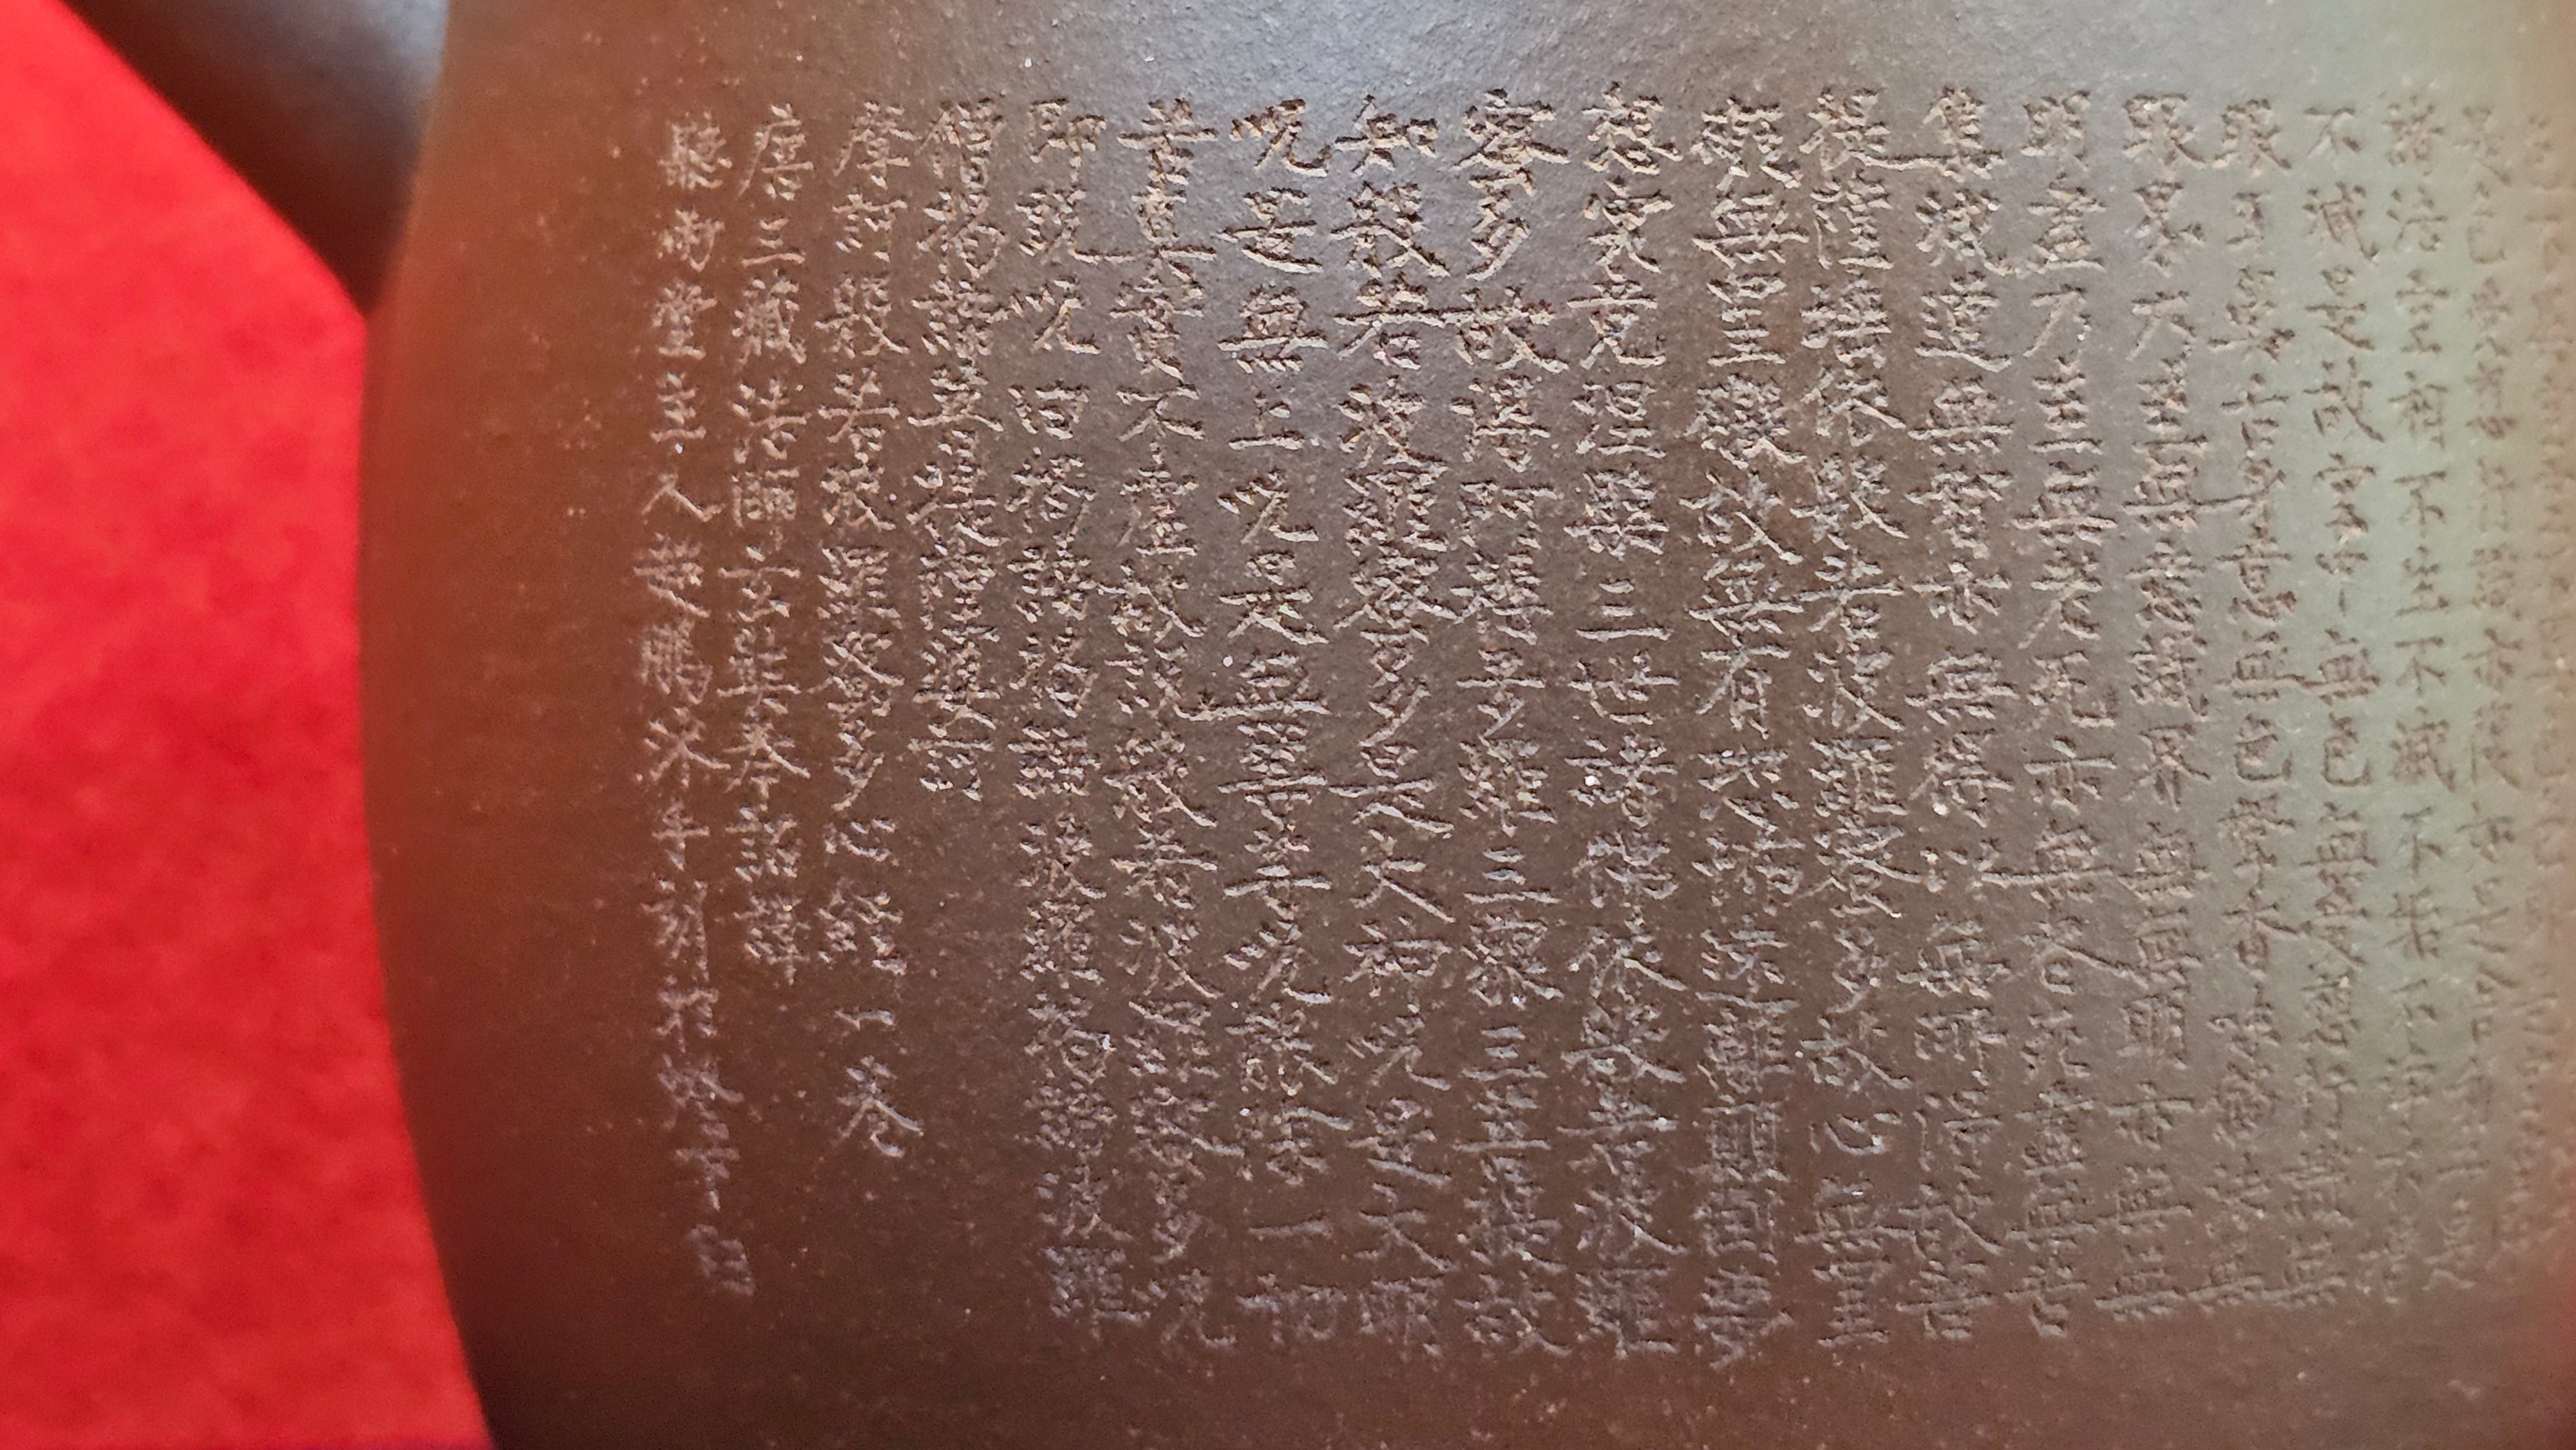 是色受想行識亦復如是舍利子是
諸法空相不生不滅不垢不淨不增
不減是故空中無色無受想行識無
眼耳鼻舌身意無色聲香味觸法無
眼界乃至無意識界無無明亦無無
明盡乃至無老死亦無老死盡無苦
集滅道無智亦無得以無所得故菩
提薩埵依般若波羅蜜多故心無罣
礙無罣礙故無有恐怖遠離顛倒夢
想究竟涅槃三世諸佛依般若波羅
蜜多故得阿耨多羅三藐三菩提故
知般若波羅蜜多是大神咒是大明
咒是無上咒是無等等咒能除一切
苦真實不虛故說般若波羅蜜多咒
即說咒曰揭諦揭諦波羅揭諦波羅
僧揭諦菩提薩婆訶
摩訶般若波羅蜜多心經一卷
唐三藏法師玄奘奉詔譯
聽雨堂主人楚鵬